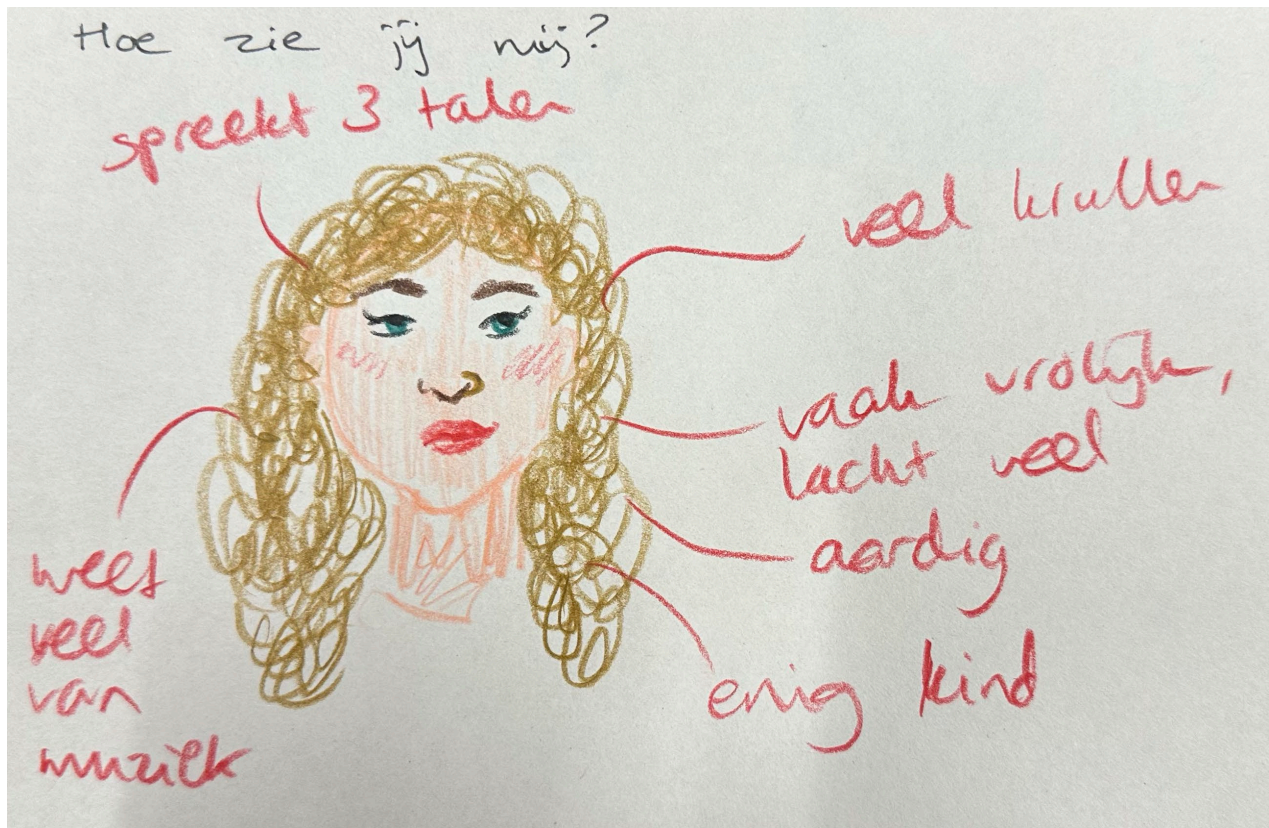 Hoe zie jij mij?
spreekt 3 talen
veel krullen
vaak vrolijk,
lacht veel
aardig
enig kind
weet
veel
van
muziek